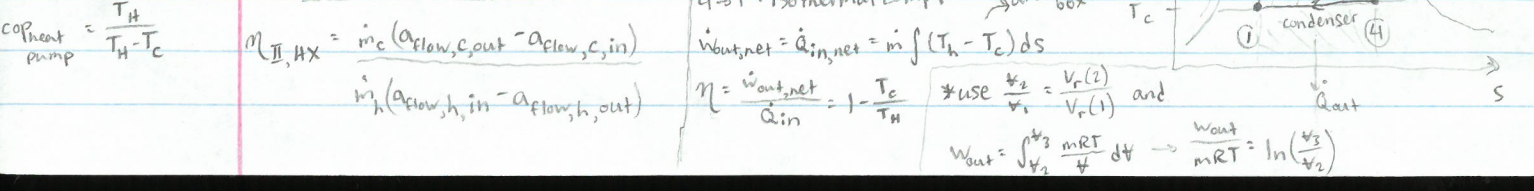 COP heat pump = T_H / (T_H - T_C)
η_II, HX = ṁ_c (a_flow,c,out - a_flow,c,in) / ṁ_h (a_flow,h,in - a_flow,h,out)
box
Ẇout,net = Q̇in,net = ṁ ∫(T_h - T_c) ds
η = Ẇout,net / Q̇in = 1 - T_c / T_H
*use V_2 / V_1 = V_r(2) / V_r(1) and
W_out = ∫_{V_2}^{V_3} mRT/V dV → W_out / mRT = ln(V_3 / V_2)
T_c
condenser
① ④
S
Q̇out